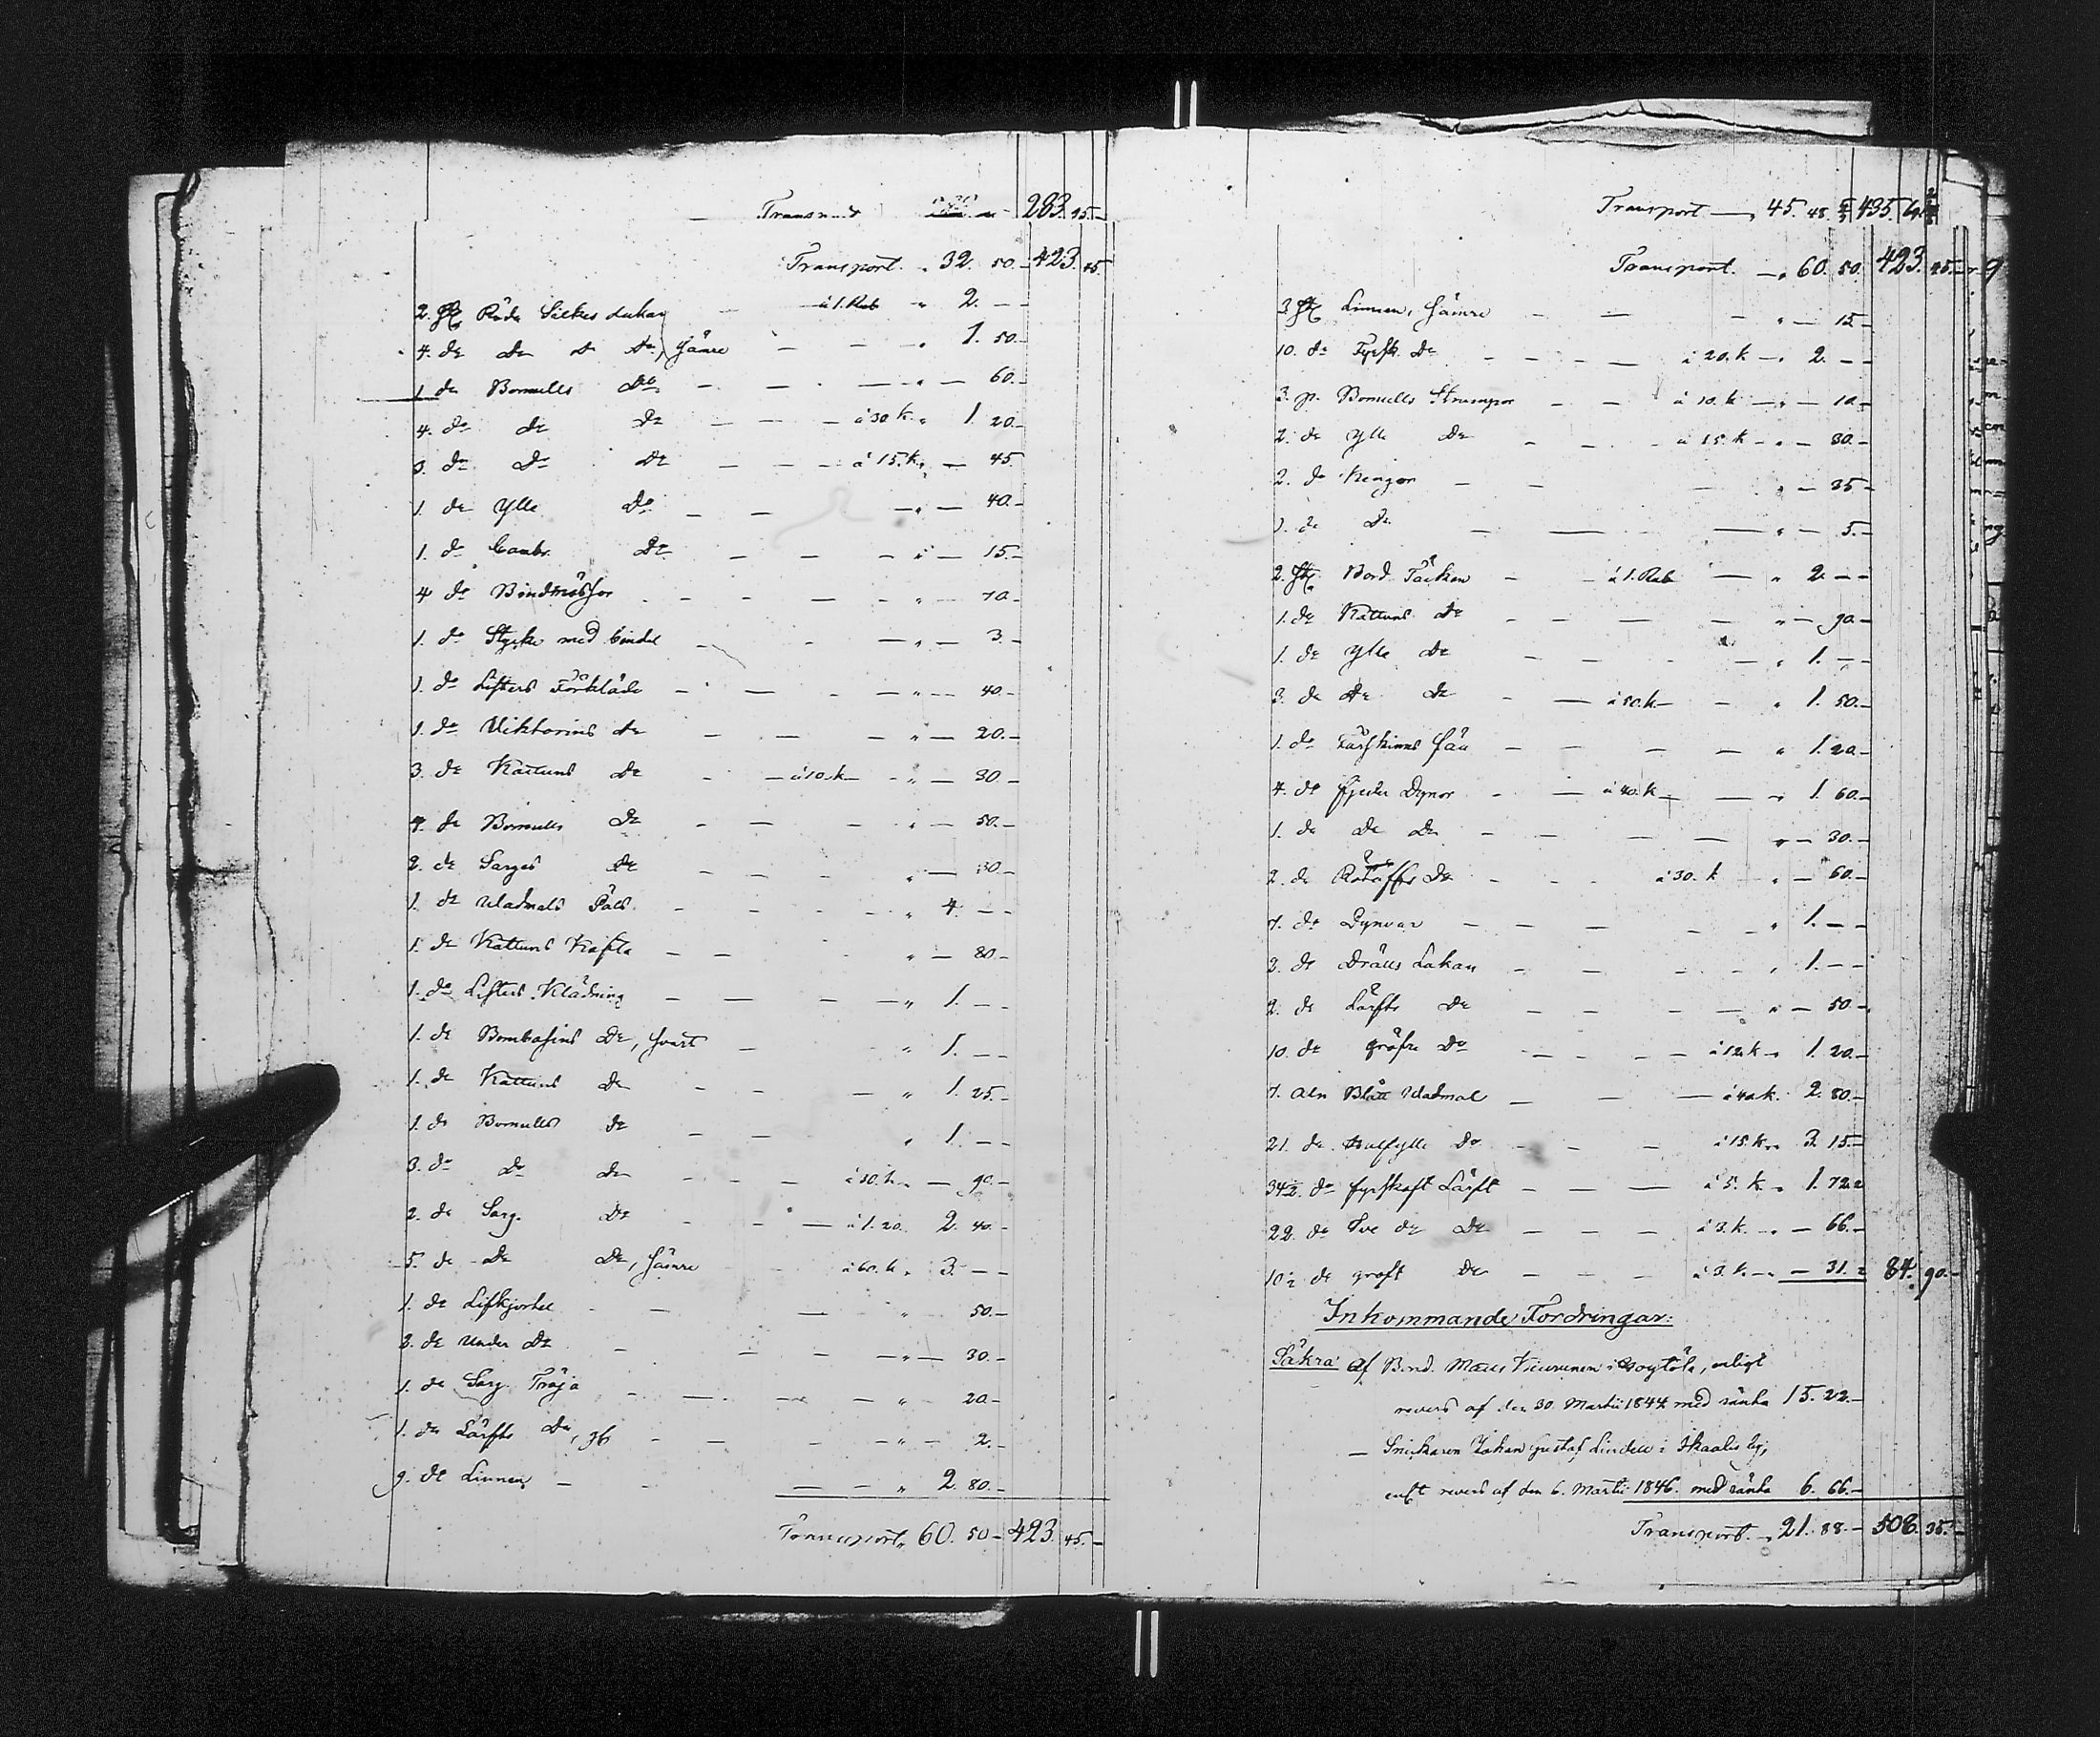 283. 45.
Transport. " 32. 50.– 423. 45.
2. st. Röda Silkes dukar – à 1. Rub " 2. – –
4. do do do do, sämre – – – " 1. 50.–
1. do Bomulls Do – – – " – 60.–
4. do do Do – – – à 30 k. " 1. 20.–
3. do Do Do – – – à 15. k. " – 45.
1. do Ylle Do – – – " – 40.–
1. do Cambr. Do – – – " – 15.–
4 do Bindmössor – – – " – 70.–
1. do Stycke med bindel – – – " – 3.–
1. do Lifters Förkläde – – – " – 40.–
1. do Viktorins do – – – " – 20.–
3. do Kattuns Do – – à 10. k – " – 30–
4. do Bomulls Do – – – " – 50.–
2. do Sarges do – – – " – 30.–
1. do Vladmals Päls – – – " 4. – –
1. do Kattuns Kofta – – – " – 80–
1. do Lifters Klädning – – – " 1. – –
1. do Bombasins Do, svart – " 1. – –
1. do Kattuns Do – – – " 1. 25.–
1. do Bomulls do – – " 1. – –
3. do Do Do – – – à 30. k. " – 90.–
2. do Sarg. Do – – – à 1. 20. 2. 40.–
5. do Do Do, sämre – à 60. k " 3. – –
1. do Lifkjortel – – – " 50.–
2. do Under Do – – – " – 30.–
1. do Sarg Tröja – – – " – 20.–
1. do Lärfts Do, – – – " – 2.–
9. do Linnen – – – " 2. 80.–
Transport " 60. 50– 423. 45.–
Transport – " 45. 48. 435.
Transport. – " 60. 50. 423. 45.–
3 st. Linnen, sämre – – – " – 15–
10. do Fyrsk. Do – – – à 20. k – " 2. – –
3. p. Bomulls Strumpor – – à 10. k – " – 10–
2. do Ylle Do – – – à 15. k – " – 30–
2. do Kengor – – – " – 35–
1. do Do – – – " – 5.–
2. st. Bord Täcken – – à 1. Rub – " 2 – –
1. do Kattuns Do – – – " – 90–
1. do Ylle Do – – – " 1. – –
3. do Do Do – – à 50. k – – " 1. 50.–
1. do Fårskinns fäll – – – " 1. 20–
4. do fjeder Dynor – – à 40. k – – " 1. 60.–
1. do Do Do – – – " – 30.–
2. do Do – – – à 30. k " – 60.–
7. do Dynvar – – – " 1. – –
2. do Drälls Lakan – – – " 1. – –
2. do Lärfts Do – – – " – 50.–
10. do gröfre Do – – – à 12 k " 1. 20–
7. aln Blått Vladmal – – – à 40 k. 2. 80.–
21. do halfylle Do – – – à 15. k " 3. 15.–
34½. do fyrskaft Lärft – – – à 5. k. " 1. 72.2
22. do Tve do Do – – – à 3. k. – " – 66.–
10½ do groft Do – – – à 3. k. – " – 31. 2 84. 90.–
Inkommande Fordringar:
Säkra: af Bond. Maus Kiurunen i, enligt
revers af den 30. Martii 1844 med ränta 15. 22.–
– Snickaren Johan Gustaf Lindell i
enl revers af den 6. Martii 1846. med ränta 6. 66.–
Transport. – " 21. 88.– 508. 35.–